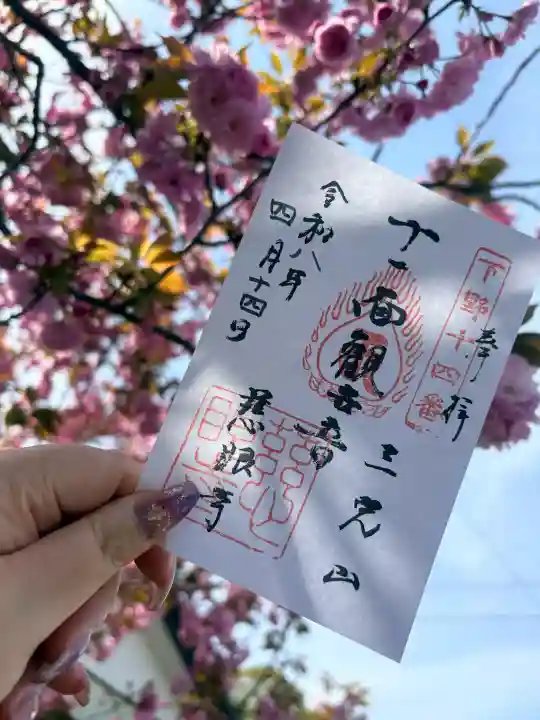 奉拝
下野十四番
十一面観世音
三光山
慈眼寺
令和八年
四月十四日